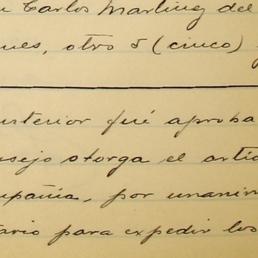 Carlos Martinez del
ques, otro 5 (cinco)
anterior fué aproba
nsejo otorga el artic
mpañia, por unanim
tario para expedir los